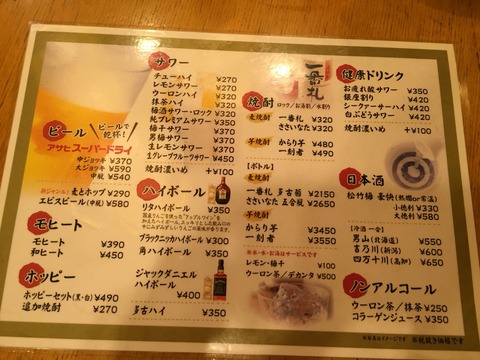 ビール
ビールで
乾杯!
アサヒスーパードライ
中ジョッキ ¥370
大ジョッキ ¥590
中瓶 ¥540
麦とホップ ¥290
エビスビール(中瓶) ¥580
モヒート
モヒート ¥390
和ヒート ¥450
ホッピー
ホッピーセット(黒・白) ¥490
追加焼酎 ¥270
サワー
チューハイ ¥270
レモンサワー ¥270
ウーロンハイ ¥320
抹茶ハイ ¥320
梅酒サワー・ロック ¥320
純プレミアムサワー ¥320
梅干サワー ¥350
男梅サワー ¥380
生レモンサワー ¥380
生グレープフルーツサワー ¥450
焼酎濃いめ +¥100
ハイボール
リタハイボール ¥350
ブラックニッカハイボール ¥300
角ハイボール ¥350
ジャックダニエル
ハイボール ¥400
多古ハイ ¥350
一番札
焼酎
ロック/お湯割/水割り
麦焼酎
一番札 ¥320
ささいなた ¥320
芋焼酎
からり芋 ¥480
一刻者 ¥490
焼酎濃いめ +¥100
【ボトル】
麦焼酎
一番札 多古菊 ¥2150
ささいなた 五合瓶 ¥2650
芋焼酎
からり芋 ¥3450
一刻者 ¥3550
※氷・水・お湯はサービスです
レモン・梅干 ¥100
ウーロン茶/デカンタ ¥500
健康ドリンク
お疲れ酸サワー ¥350
極座割り ¥420
シークァーサーハイ ¥350
白ぶどうサワー ¥350
+¥100
日本酒
松竹梅 豪快(熱燗or常温)
小徳利 ¥330
大徳利 ¥580
【冷酒 一合】
男山(北海道) ¥600
吉乃川(新潟) ¥600
四万十川(高知) ¥650
ノンアルコール
ウーロン茶/抹茶 ¥250
コラーゲンジュース ¥350
※写真はイメージです
※税抜き価格です